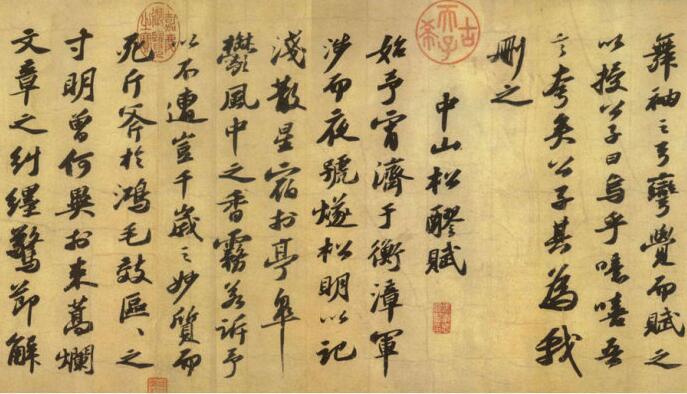 舞袖之弓彎覺而賦之
以授公子曰烏乎噫嘻吾
言夸矣公子其為我
刪之
中山松醪賦
始予宵濟于衡漳軍
涉而夜號燧松明以記
淺散星宿於亭皐
欝風中之香霧若訴予
以不遭豈千歲之妙質而
死斤斧於鴻毛效區區之
寸明曾何異於束蒿爛
文章之糾纆驚節解
古希天子
嘉慶御覽之寶